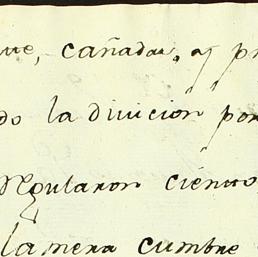 cañadas, y
do la divicion por
Regularon ciento
la mera cumbre